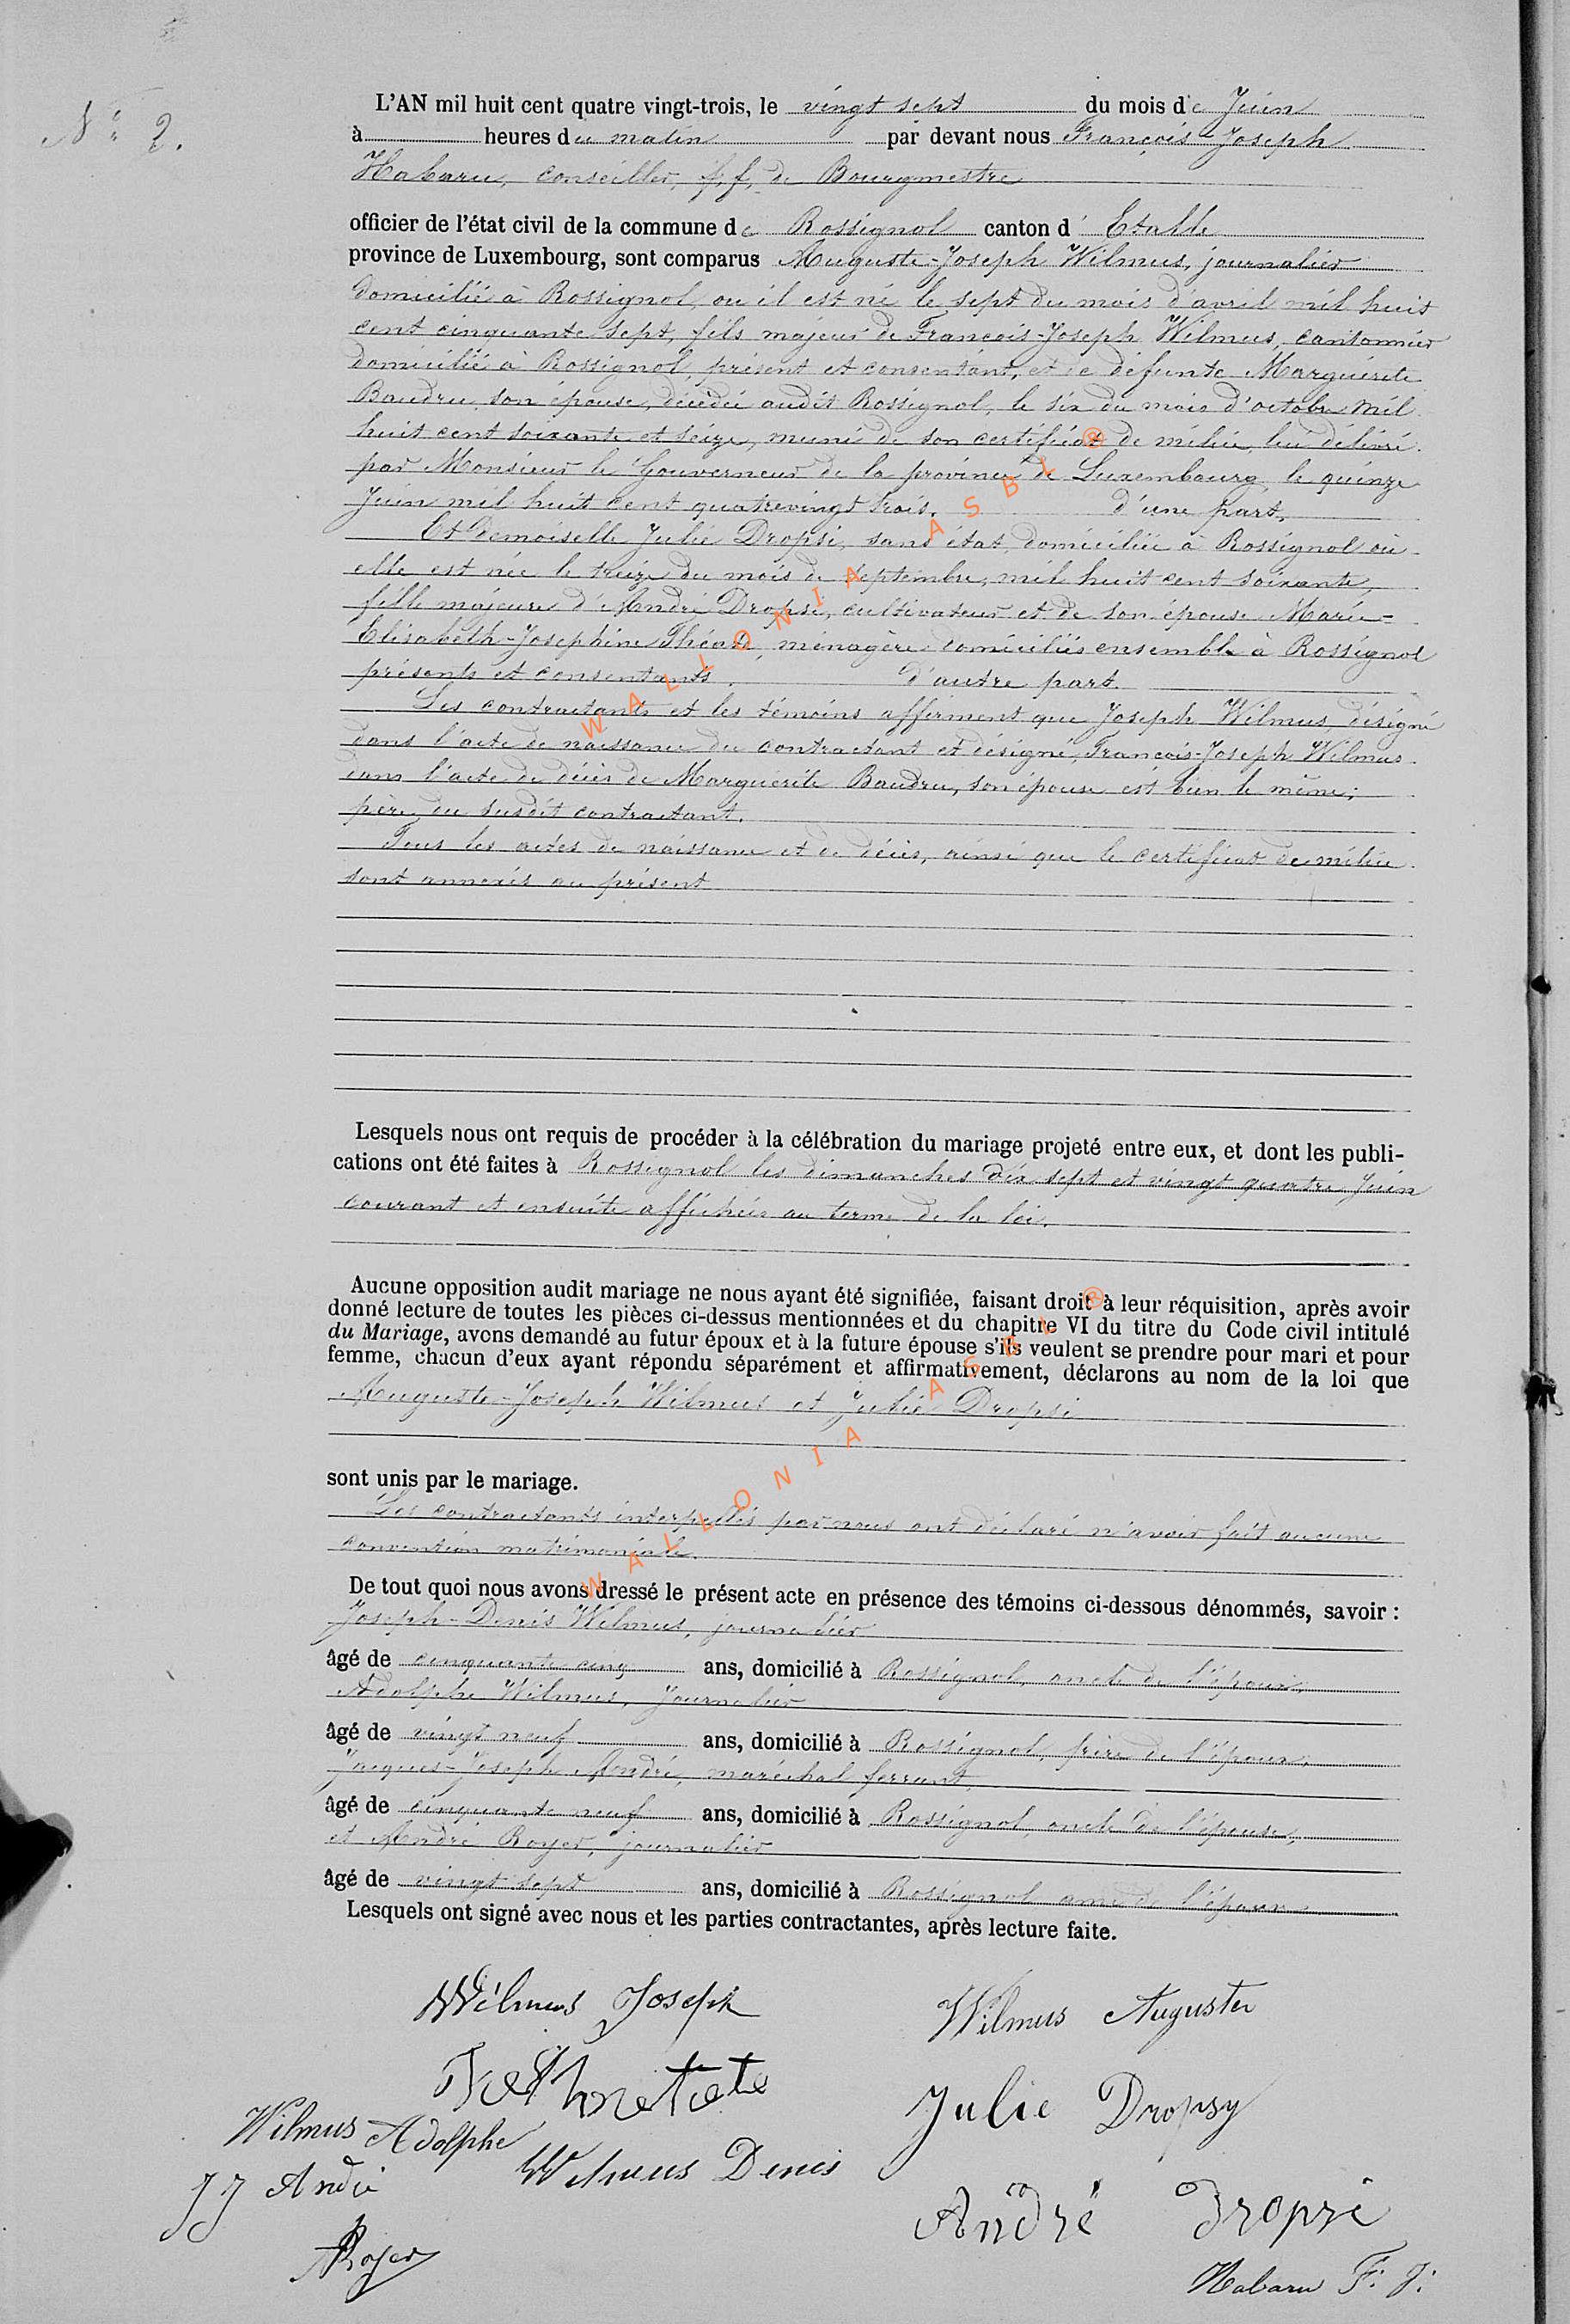 N° 2.
L'AN mil huit cent quatre vingt-trois, le vingt sept du mois de Juin
à heures du matin par devant nous François-Joseph
Habaru, conseiller, f.f. de Bourgmestre
officier de l'état civil de la commune de Rossignol canton d' Etalle
province de Luxembourg, sont comparus Auguste-Joseph Wilmus, journalier
domicilié à Rossignol, ou il est né le sept du mois d'avril mil huit
cent cinquante sept, fils majeur de François-Joseph Wilmus, cantonnier
domicilié à Rossignol, présent et consentant, et de défunte Marguerite
Baudru, son épouse, décédée audit Rossignol, le six du mois d'octobre mil
huit cent soixante et seize, muni de son certificat de milice, lui délivré
par Monsieur le Gouverneur de la province de Luxembourg, le quinze
Juin mil huit cent quatrevingt trois. d'une part.
Et Demoiselle Julie Dropsi, sans état, domiciliée à Rossignol où
elle est née le treize du mois de septembre, mil huit cent soixante,
fille majeure d'André Dropsi, cultivateur et de son épouse Marie-
Elisabeth-Josephine, ménagère domiciliés ensemble à Rossignol
présents et consentants. d'autre part.
Les contractants et les témoins afferment que Joseph Wilmus, désigné
dans l'acte de naissance du contractant et désigné, François-Joseph Wilmus
dans l'acte de décès de Marguerite Baudru, son épouse est bien le même;
père du susdit contractant.
Tous les actes de naissance et de décès, ainsi que le certificat de milice
sont annexés au présent
Lesquels nous ont requis de procéder à la célébration du mariage projeté entre eux, et dont les publi-
cations ont été faites à Rossignol les dimanches dix sept et vingt quatre Juin
courant et ensuite affichées au terme de la loi.
Aucune opposition audit mariage ne nous ayant été signifiée, faisant droit à leur réquisition, après avoir
donné lecture de toutes les pièces ci-dessus mentionnées et du chapitre VI du titre du Code civil intitulé
du Mariage, avons demandé au futur époux et à la future épouse s'ils veulent se prendre pour mari et pour
femme, chacun d'eux ayant répondu séparément et affirmativement, déclarons au nom de la loi que
Auguste-Joseph Wilmus et Julie Dropsi
sont unis par le mariage.
Les contractants interpellés par nous ont déclaré n'avoir fait aucune
convention matrimoniale.
De tout quoi nous avons dressé le présent acte en présence des témoins ci-dessous dénommés, savoir :
Joseph-Denis Wilmus, journalier
âgé de cinquante cinq ans, domicilié à Rossignol, oncle de l'époux,
Adolphe Wilmus, Journalier
âgé de vingt neuf ans, domicilié à Rossignol, frère de l'époux,
Jacques-Joseph André, maréchal ferrant
âgé de cinquante neuf ans, domicilié à Rossignol, oncle de l'épouse,
et André Royer, journalier
âgé de vingt sept ans, domicilié à Rossignol ami de l'époux
Lesquels ont signé avec nous et les parties contractantes, après lecture faite.
Wilmus Joseph
Wilmus Auguste
Julie Dropsy
Wilmus Adolphe
Wilmus Denis
JJ André
André Dropsi
ARoyer
Habaru F. J.
WALLONIA ASBL ®
WALLONIA ASBL ®